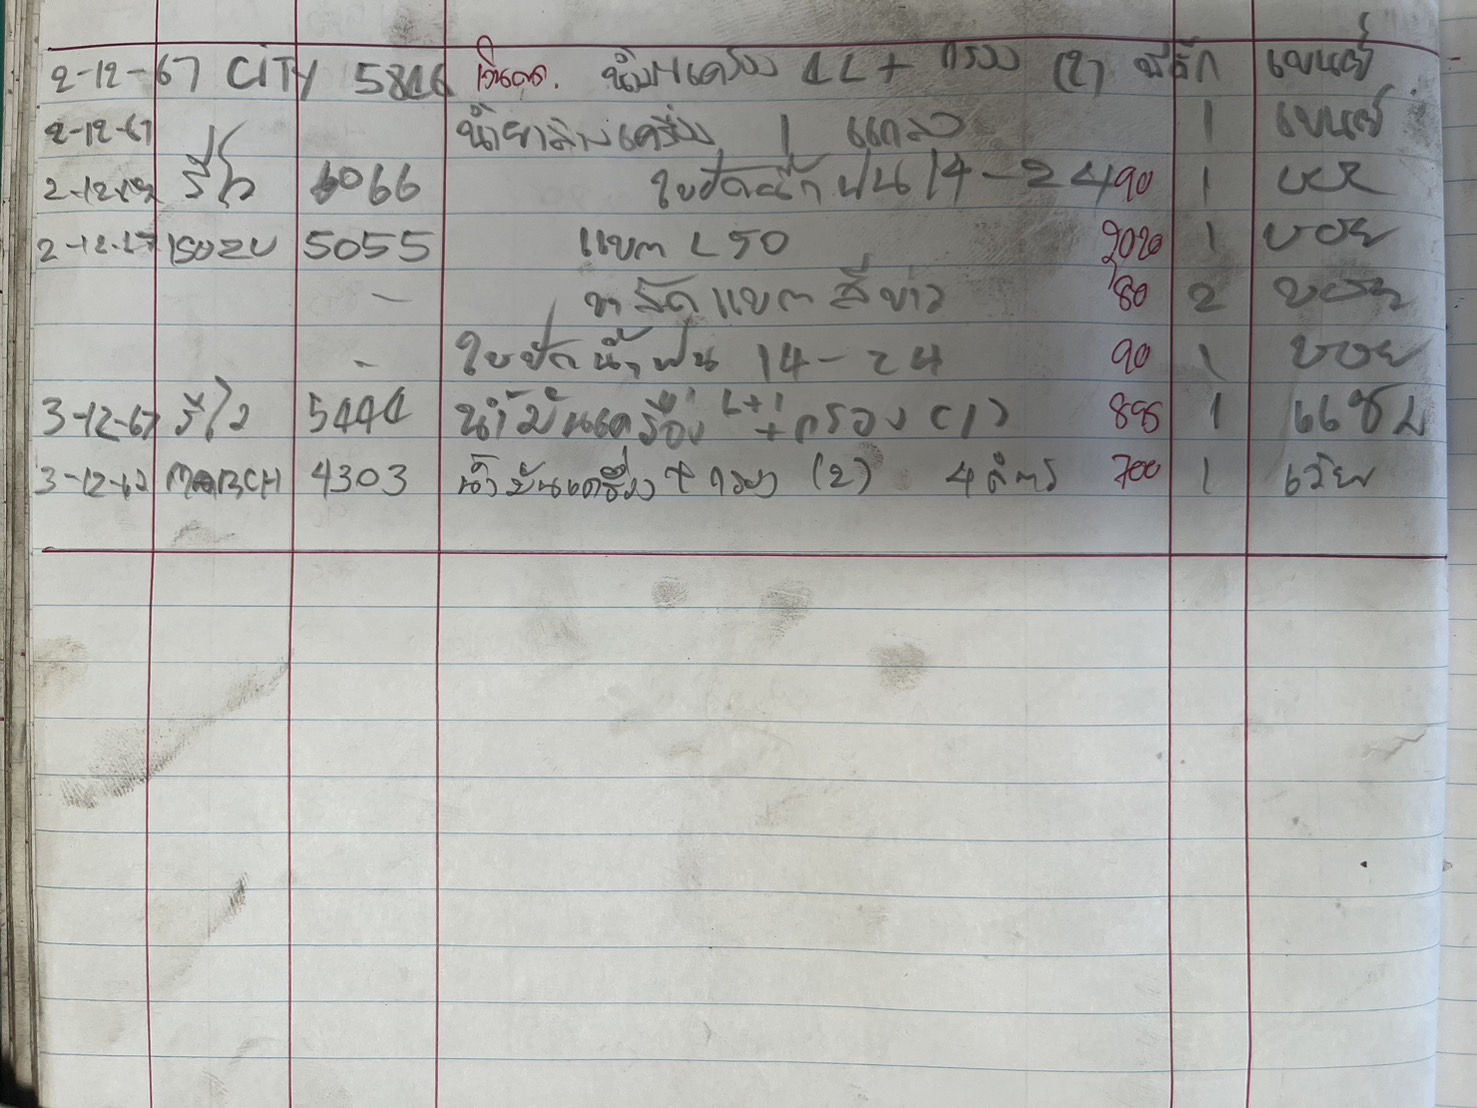 2-12-67 CITY 5816 น้ำมันเครื่อง 4L + กรอง (2)
2-12-67 น้ำยาล้างเครื่อง 1 แกลอ 1
2-12-67 รีโว 6066 ใบปัดน้ำฝน 14-24 90 1 บอย
2-12-67 ISUZU 5055 แบต L50 2020 1 บอย
- ขารัดแบตสีขาว 80 2 บอย
- ใบปัดน้ำฝน 14-24 90 1 บอย
3-12-67 รีโว 5444 น้ำมันเครื่อง L+1 + กรอง (1) 895 1
3-12-67 MARCH 4303 น้ำมันเครื่อง + กรอง (2) 4 ลิตร 700 1